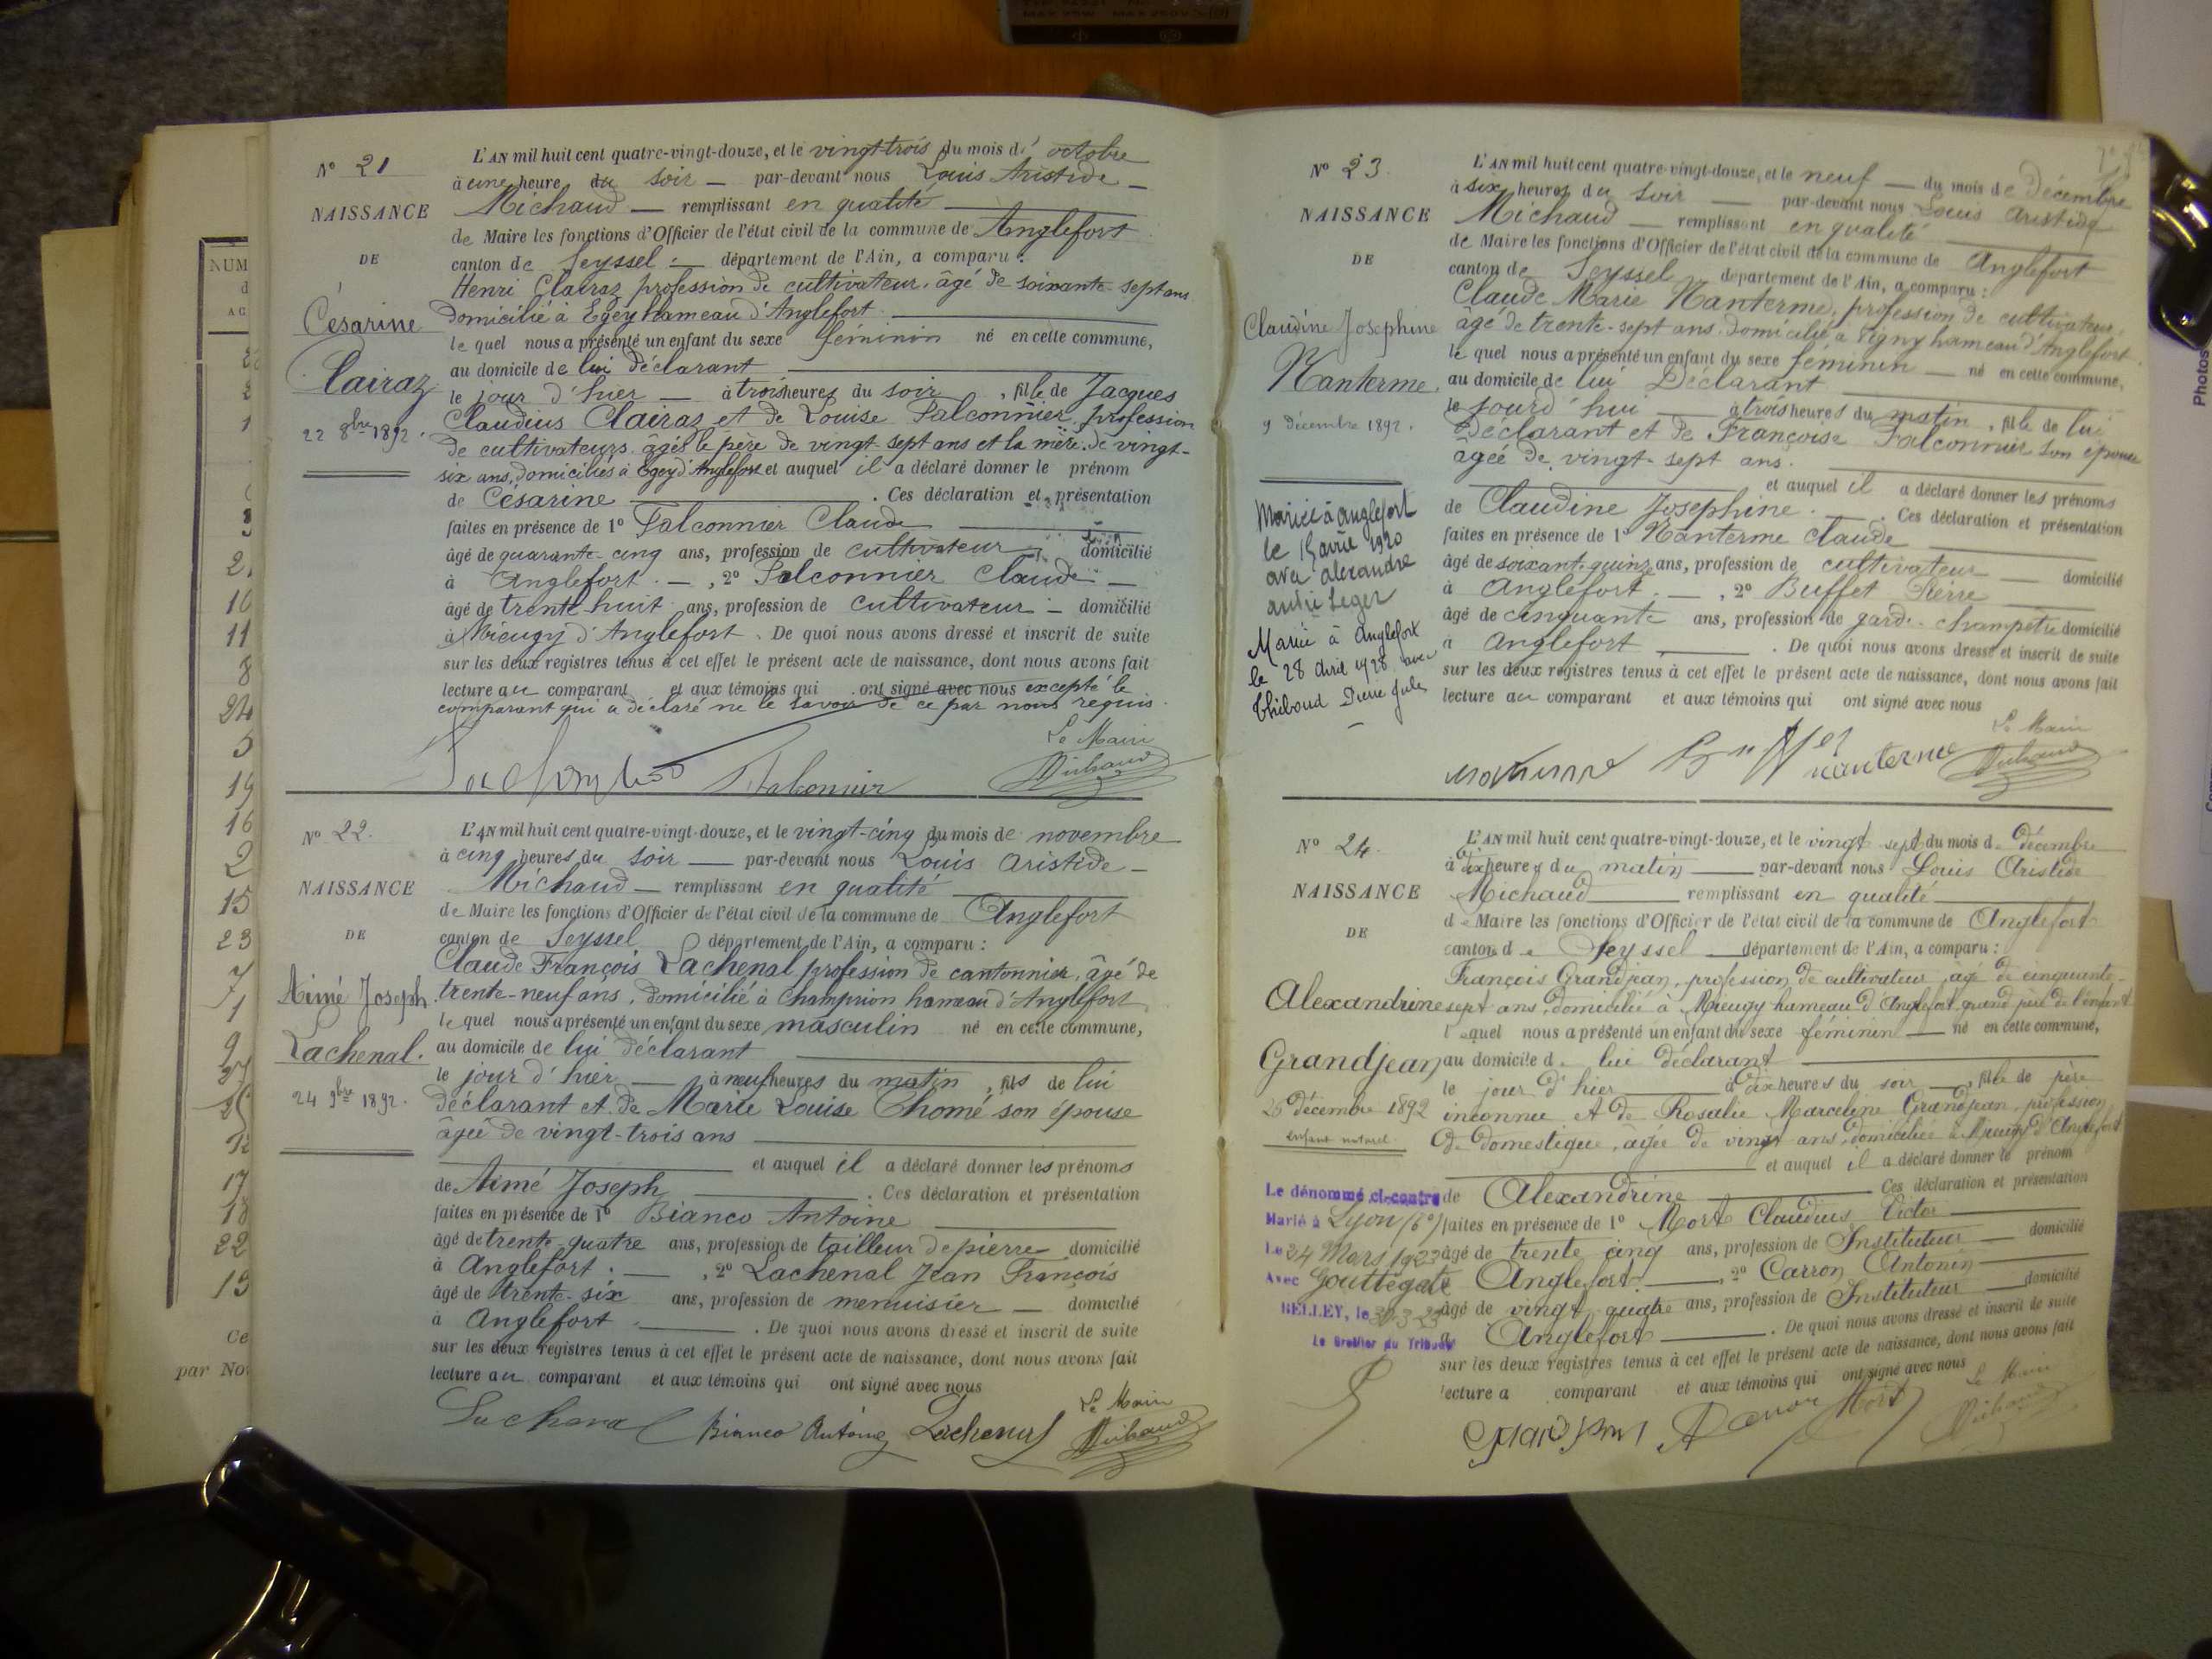 N° 21
NAISSANCE
DE
Césarine
Clairaz
22 8bre 1892.
L'AN mil huit cent quatre-vingt-douze, et le vingt-trois du mois d' octobre
à une heure du soir — par-devant nous Louis Aristide —
Michaud — remplissant en qualité
de Maire les fonctions d'Officier de l'état civil de la commune de Anglefort
canton de Seyssel — département de l'Ain, a comparu :
Henri Clairaz profession de cultivateur, âgé de soixante-sept ans
domicilié à Egey hameau d'Anglefort
le quel nous a présenté un enfant du sexe féminin né en cette commune,
au domicile de lui déclarant
le jour d'hier — à trois heures du soir , fille de Jacques
Claudius Clairaz et de Louise Falconnier, profession
de cultivateurs âgés le père de vingt-sept ans et la mère de vingt-
six ans, domiciliés à Egey d'Anglefort et auquel il a déclaré donner le prénom
de Césarine . Ces déclaration et présentation
faites en présence de 1° Falconnier Claude
âgé de quarante-cinq ans, profession de cultivateur , domicilié
à Anglefort. — , 2° Falconnier Claude —
âgé de trente huit ans, profession de cultivateur — domicilié
à Mieugy d'Anglefort . De quoi nous avons dressé et inscrit de suite
sur les deux registres tenus à cet effet le présent acte de naissance, dont nous avons fait
lecture au comparant et aux témoins qui ont signé avec nous excepté le
comparant qui a déclaré ne le savoir de ce par nous requis.
Le Maire
Falconnier
Michaud
N° 22.
NAISSANCE
DE
Aimé Joseph
Lachenal.
24 9bre 1892.
L'AN mil huit cent quatre-vingt-douze, et le vingt-cinq du mois de novembre
à cinq heures du soir — par-devant nous Louis Aristide —
Michaud — remplissant en qualité
de Maire les fonctions d'Officier de l'état civil de la commune de Anglefort
canton de Seyssel département de l'Ain, a comparu :
Claude François Lachenal profession de cantonnier, âgé de
trente-neuf ans, domicilié à Champrion hameau d'Anglefort
le quel nous a présenté un enfant du sexe masculin né en cette commune,
au domicile de lui déclarant
le jour d'hier — à neuf heures du matin , fils de lui
déclarant et de Marie Louise Thomé son épouse
âgée de vingt-trois ans
et auquel il a déclaré donner les prénoms
de Aimé Joseph . Ces déclaration et présentation
faites en présence de 1° Bianco Antoine
âgé de trente-quatre ans, profession de tailleur de pierre domicilié
à Anglefort. — , 2° Lachenal Jean François
âgé de trente-six ans, profession de menuisier — domicilié
à Anglefort . De quoi nous avons dressé et inscrit de suite
sur les deux registres tenus à cet effet le présent acte de naissance, dont nous avons fait
lecture au comparant et aux témoins qui ont signé avec nous
Le Maire
Lachenal Bianco Antoine Lachenal Michaud
N° 23.
NAISSANCE
DE
Claudine Josephine
Nanterme.
9 Décembre 1892.
Mariée à Anglefort
le 15 avril 1920
avec alexandre
andré Leger
Mariée à Anglefort
le 28 Avril 1928 avec
Thibaud Pierre Jules
L'AN mil huit cent quatre-vingt-douze, et le neuf — du mois de Décembre
à six heures du soir — par-devant nous Louis Aristide
Michaud — remplissant en qualité
de Maire les fonctions d'Officier de l'état civil de la commune de Anglefort
canton de Seyssel département de l'Ain, a comparu :
Claude Marie Nanterme, profession de cultivateur,
âgé de trente-sept ans, domicilié à Vigny hameau d'Anglefort
le quel nous a présenté un enfant du sexe féminin — né en cette commune,
au domicile de lui Déclarant
le jourd'hui — à trois heures du matin , fille de lui
Déclarant et de Françoise Falconnier son épouse
âgée de vingt-sept ans.
et auquel il a déclaré donner les prénoms
de Claudine Josephine. . Ces déclaration et présentation
faites en présence de 1° Nanterme Claude
âgé de soixante-quinze ans, profession de cultivateur — domicilié
à Anglefort. — , 2° Buffet Pierre
âgé de cinquante ans, profession de garde-champêtre domicilié
à Anglefort . De quoi nous avons dressé et inscrit de suite
sur les deux registres tenus à cet effet le présent acte de naissance, dont nous avons fait
lecture au comparant et aux témoins qui ont signé avec nous
Le Maire
nanterme
Michaud
N° 24.
NAISSANCE
DE
Alexandrine
Grandjean
26 décembre 1892
enfant naturel
Le dénommé ci-contre
Marié à Lyon (6e)
Le 24 Mars 1923
Avec Gouttegate
BELLEY, le 30-3-23
Le Greffier du Tribunal
L'AN mil huit cent quatre-vingt-douze, et le vingt sept du mois de Décembre
à dix heures du matin — par-devant nous Louis Aristide
Michaud remplissant en qualité
de Maire les fonctions d'Officier de l'état civil de la commune de Anglefort
canton de Seyssel — département de l'Ain, a comparu :
François Grandjean, profession de cultivateur âgé de cinquante-
sept ans, domicilié à Mieugy hameau d'Anglefort grand père de l'enfant
lequel nous a présenté un enfant du sexe féminin — né en cette commune,
au domicile de lui déclarant
le jour d'hier à dix heures du soir — , fille de père
inconnu et de Rosalie Marceline Grandjean, profession
de domestique, âgée de vingt ans, domiciliée à Mieugy d'Anglefort
et auquel il a déclaré donner le prénom
de Alexandrine Ces déclaration et présentation
faites en présence de 1° Mort Claudius Victor
âgé de trente cinq ans, profession de Instituteur — domicilié
à Anglefort. — , 2° Carron Antonin
âgé de vingt quatre ans, profession de Instituteur domicilié
à Anglefort . De quoi nous avons dressé et inscrit de suite
sur les deux registres tenus à cet effet le présent acte de naissance, dont nous avons fait
lecture a comparant et aux témoins qui ont signé avec nous
Le Maire
Mort Michaud
NUM
AC
11
8
24
5
19
16
2
15
23
7
1
9
17
18
22
13
Ce
par No
Photos